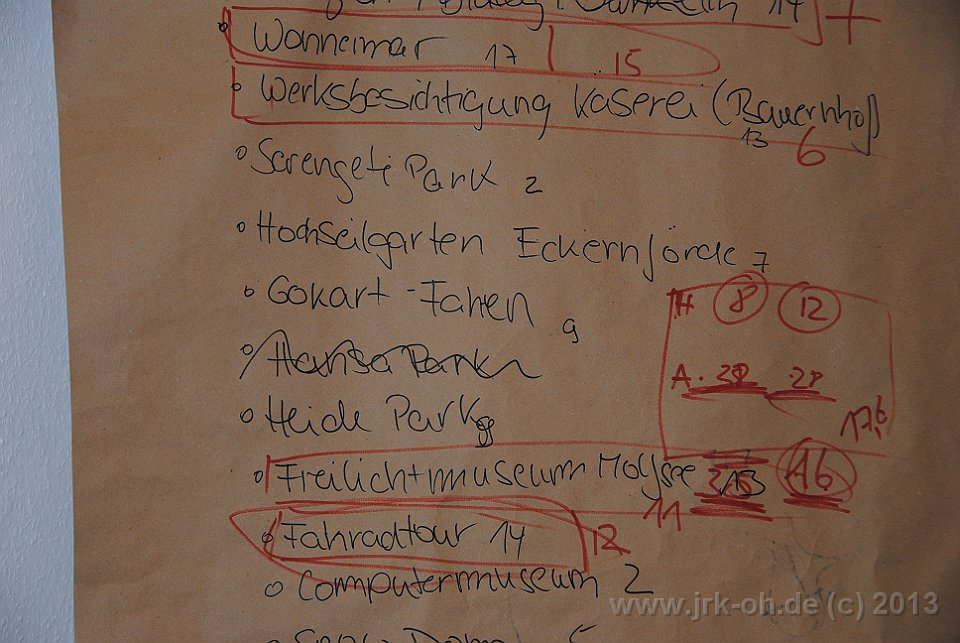 14
Wonneimar 17 15
Werksbesichtigung Käserei (Bauernhof)
13 6
Serengeti Park 2
Hochseilgarten Eckernförde 7
Gokart-Fahren 9
H 8 12
Hansa Park
A. 38 28
Heide Park 8
17,6
Freilichtmuseum Molfsee 13 16
11
Fahradtour 14 12
Computermuseum 2
www.jrk-oh.de (c) 2013